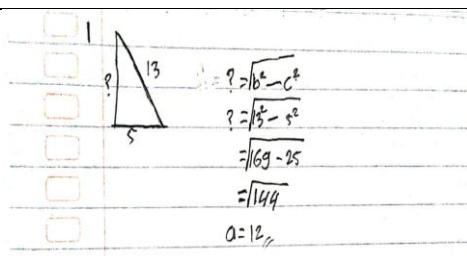 1
13
?
5
? = √b² - c²
? = √13² - 5²
= √169 - 25
= √144
a = 12 //